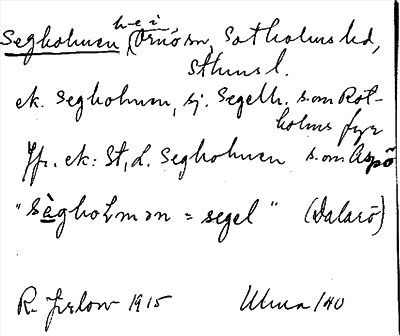 h-e-i
Segholmen, Ornö sn, Sotholms hd,
Sthms l.
ek. Segholmen, sj. Segelh. s.om Rot-
holms fyr
Jfr. ek: St, L. Segholmen s.om Aspö
"Sègholmən = segel" (Dalarö)
R. 1915 /40